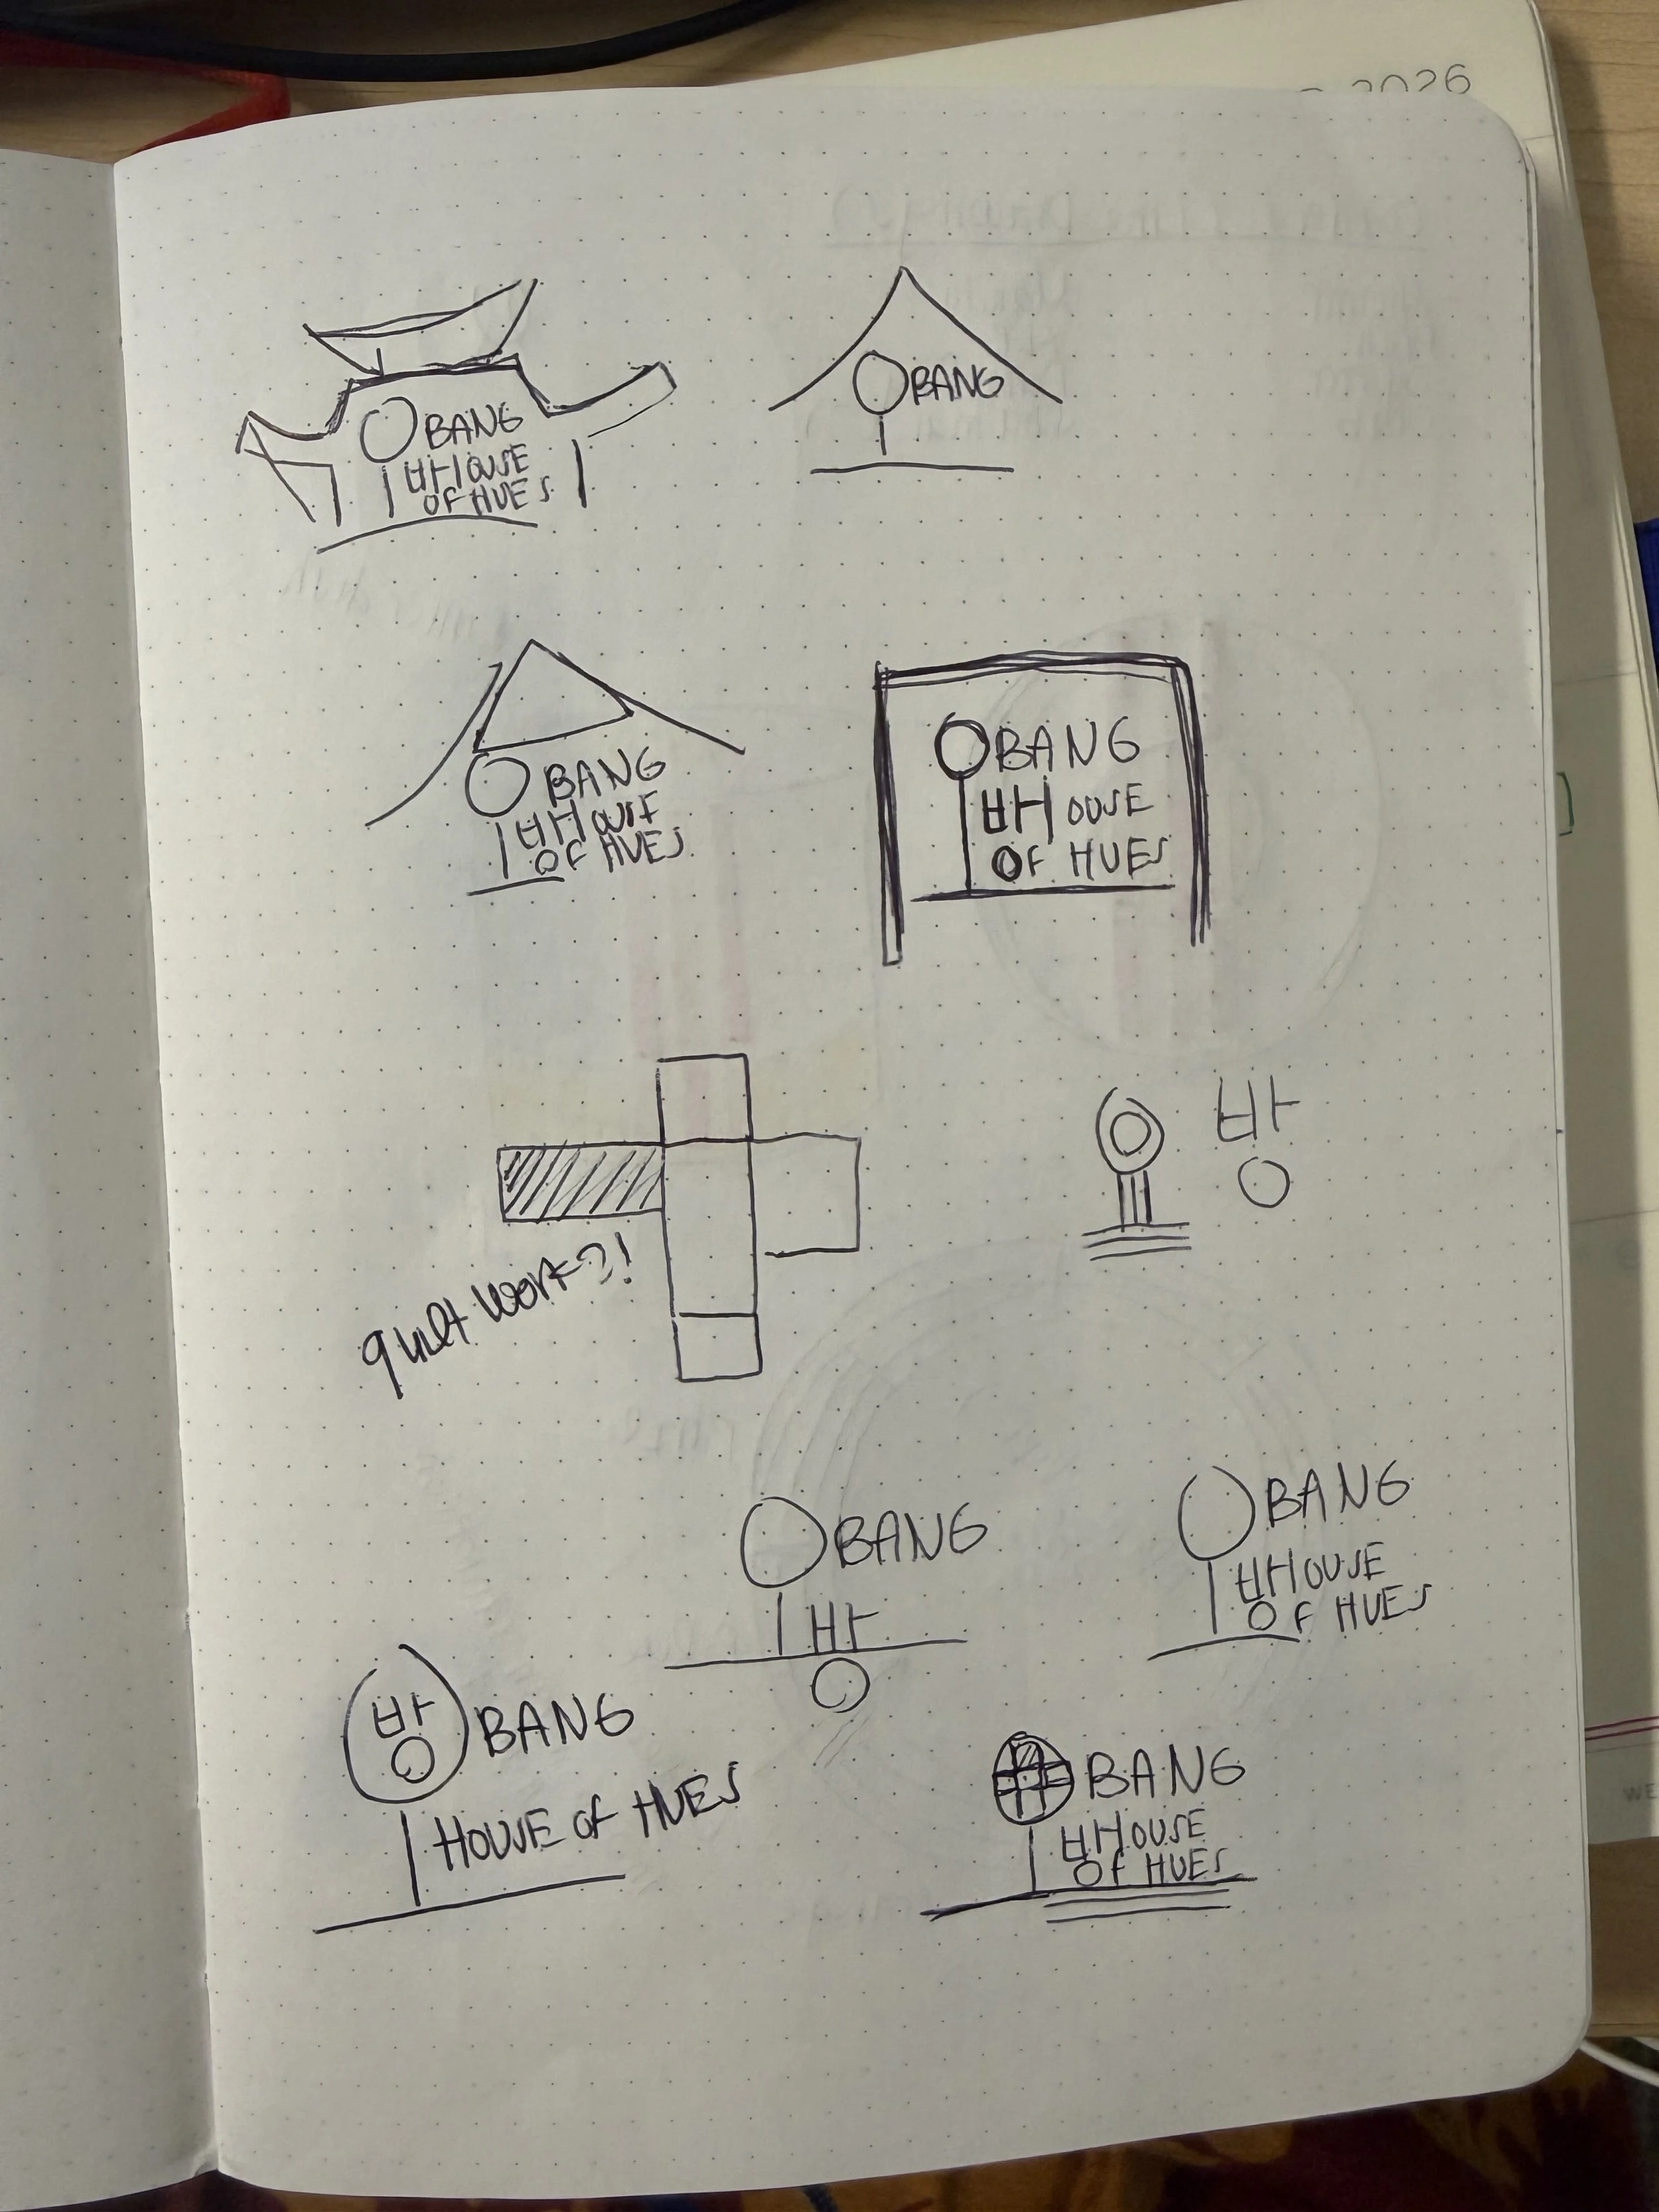 2026
OBANG
ㅂHOUSE
OF HUES
OBANG
OBANG
ㅂHOUSE
OF HUES
OBANG
ㅂHOUSE
OF HUES
quilt work?!
오 방
OBANG
방
OBANG
ㅂHOUSE
OF HUES
방 BANG
HOUSE OF HUES
OBANG
ㅂHOUSE
OF HUES